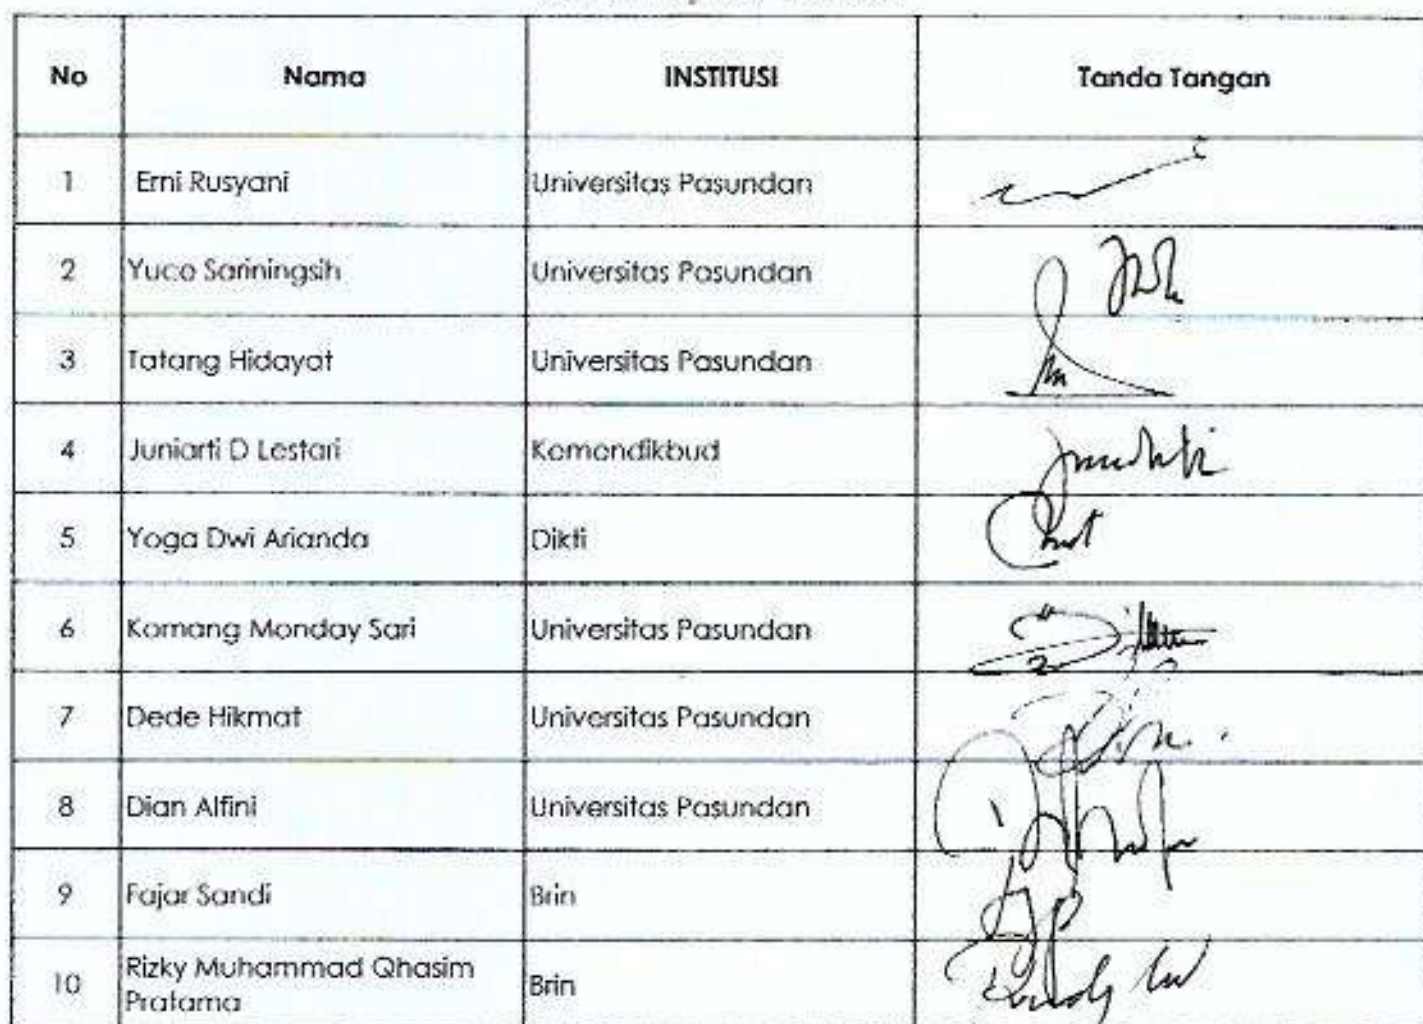 No Nama INSTITUSI Tanda Tangan
1 Erni Rusyani Universitas Pasundan
2 Yuce Sariningsih Universitas Pasundan
3 Tatang Hidayat Universitas Pasundan
4 Juniarti D Lestari Kemendikbud
5 Yoga Dwi Arianda Dikti
6 Komang Monday Sari Universitas Pasundan
7 Dede Hikmat Universitas Pasundan
8 Dian Alfini Universitas Pasundan
9 Fajar Sandi Brin
10 Rizky Muhammad Qhasim Brin
Pratama